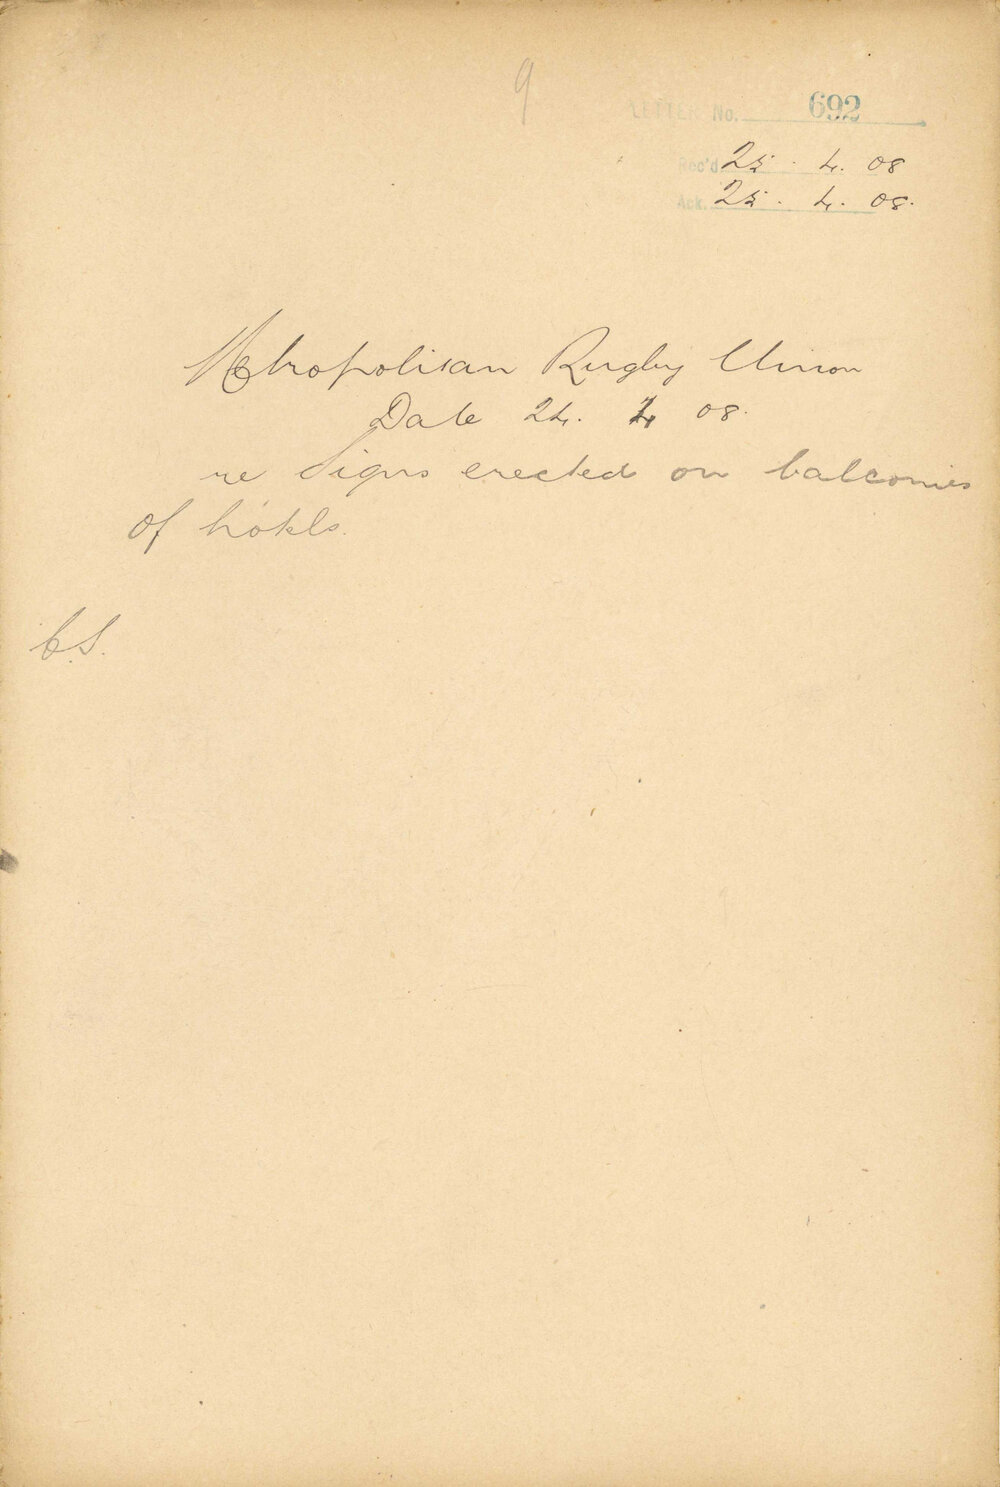 9
LETTER No. 692
Rec'd 25. 4. 08
Ack. 25. 4. 08.
Metropolitan Rugby Union
Date 24. 4 08.
re Signs erected on balconies
of hotels.
C.S.